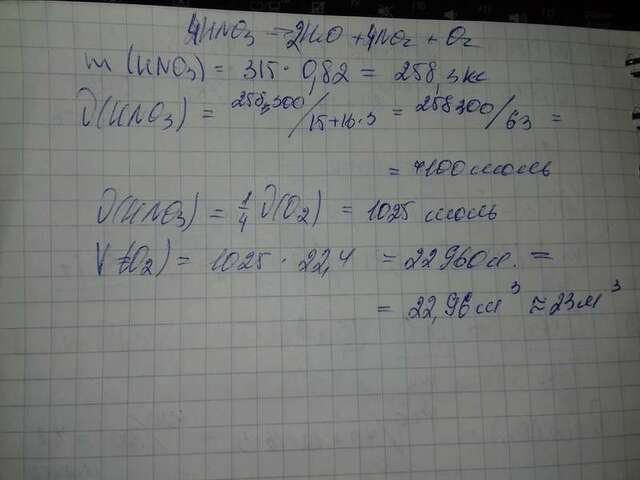 4HNO₃ = 2H₂O + 4NO₂ + O₂
m (HNO₃) = 315 · 0,82 = 258,3 кг
ν(HNO₃) = 258300/15+16·3 = 258300/63 =
= 4100 моль
ν(HNO₃) = 1/4 ν(O₂) = 1025 моль
V(O₂) = 1025 · 22,4 = 22960 =
= 22,96 м³ ≈ 23 м³